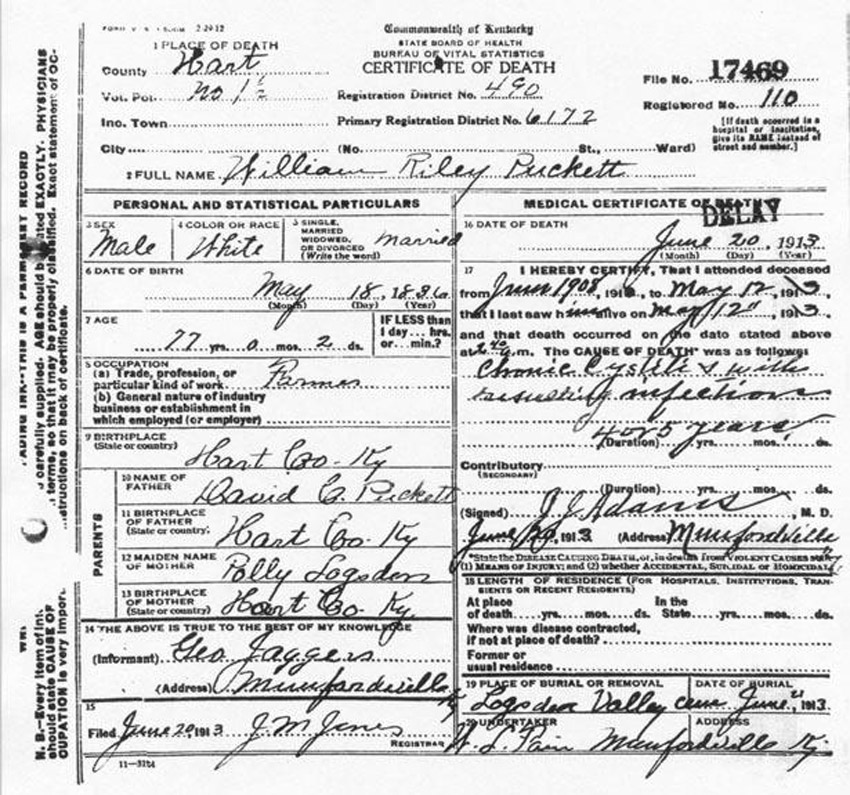 2-29-12
Commonwealth of Kentucky
STATE BOARD OF HEALTH
BUREAU OF VITAL STATISTICS
CERTIFICATE OF DEATH
1 PLACE OF DEATH
County Hart
Vot. Pct. No 1½
Inc. Town
City
Registration District No. 490
Primary Registration District No. 6172
(No. St., Ward)
File No. 17469
Registered No. 110
[If death occurred in a
hospital or institution,
give its NAME instead of
street and number.]
2 FULL NAME William Riley Puckett
PERSONAL AND STATISTICAL PARTICULARS
3 SEX Male
4 COLOR OR RACE White
5 SINGLE,
MARRIED
WIDOWED,
OR DIVORCED
(Write the word) Married
6 DATE OF BIRTH
May 18, 1836
(Month) (Day) (Year)
7 AGE
77 yrs. 0 mos. 2 ds.
IF LESS than
1 day ... hrs.
or ... min.?
8 OCCUPATION
(a) Trade, profession, or
particular kind of work Farmer
(b) General nature of industry
business or establishment in
which employed (or employer)
9 BIRTHPLACE
(State or country)
Hart Co. Ky
PARENTS
10 NAME OF
FATHER
David C. Puckett
11 BIRTHPLACE
OF FATHER
(State or country)
Hart Co. Ky
12 MAIDEN NAME
OF MOTHER
Polly Logsden
13 BIRTHPLACE
OF MOTHER
(State or country)
Hart Co. Ky
14 THE ABOVE IS TRUE TO THE BEST OF MY KNOWLEDGE
(Informant) Geo Jaggers
(Address) Munfordville Ky
15
Filed June 20 1913 J M Jones
REGISTRAR
11-3184
MEDICAL CERTIFICATE OF DEATH
DELAY
16 DATE OF DEATH
June 20, 1913
(Month) (Day) (Year)
17 I HEREBY CERTIFY, That I attended deceased
from June 1908, 191, to May 12, 1913
that I last saw him alive on May 12, 1913
and that death occurred on the date stated above
at 2 40 a.m. The CAUSE OF DEATH* was as follows:
Chronic Cystitis with
resulting infection
4 or 5 years
(Duration) yrs. mos. ds.
Contributory
(SECONDARY)
(Duration) yrs. mos. ds.
(Signed) J J Adams, M. D.
June 20, 1913 (Address) Munfordville
*State the DISEASE CAUSING DEATH, or, in deaths from VIOLENT CAUSES state
(1) MEANS OF INJURY; and (2) whether ACCIDENTAL, SUICIDAL or HOMICIDAL
18 LENGTH OF RESIDENCE (FOR HOSPITALS, INSTITUTIONS, TRAN-
SIENTS OR RECENT RESIDENTS)
At place
of death yrs. mos. ds.
In the
State yrs. mos. ds.
Where was disease contracted,
if not at place of death?
Former or
usual residence
19 PLACE OF BURIAL OR REMOVAL
Logsden Valley cem
DATE OF BURIAL
June 21 1913
20 UNDERTAKER
ADDRESS
Munfordville Ky